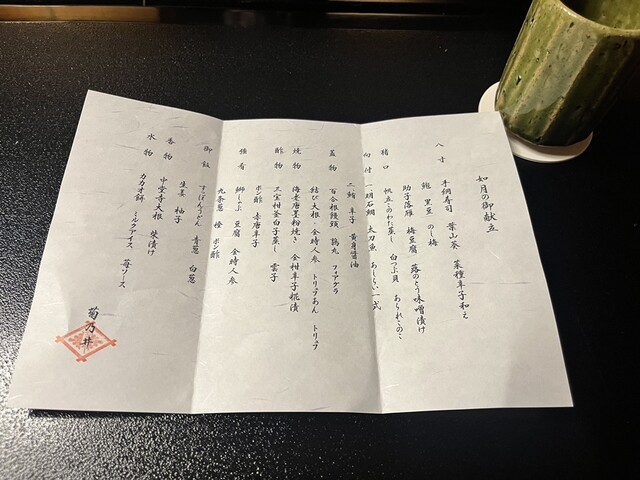 如月の御献立
八寸 手綱寿司 葉山葵 菜種辛子和え
鮑 黒豆 のし梅
助子落雁 梅豆腐 蕗のとう味噌漬け
猪口 帆立このわた蒸し 白つぶ貝 あられこのこ
向付 一 明石鯛 太刀魚 あしらい一式
二 鮪 辛子 黄身醤油
蓋物 百合根饅頭 鶉丸 フォアグラ
結び大根 金時人参 トリュフあん トリュフ
焼物 海老唐墨粉焼き 金柑辛子糀漬
酢物 三宝柑釜白子蒸し 雲子
ポン酢 赤唐辛子
強肴 鰤しゃぶ 豆腐 金時人参
九条葱 橙 ポン酢
御飯 すっぽんうどん 青葱 白葱
生姜 柚子
香物 中堂寺大根 柴漬け
水物 カカオ餅 ミルクアイス 苺ソース
菊乃井